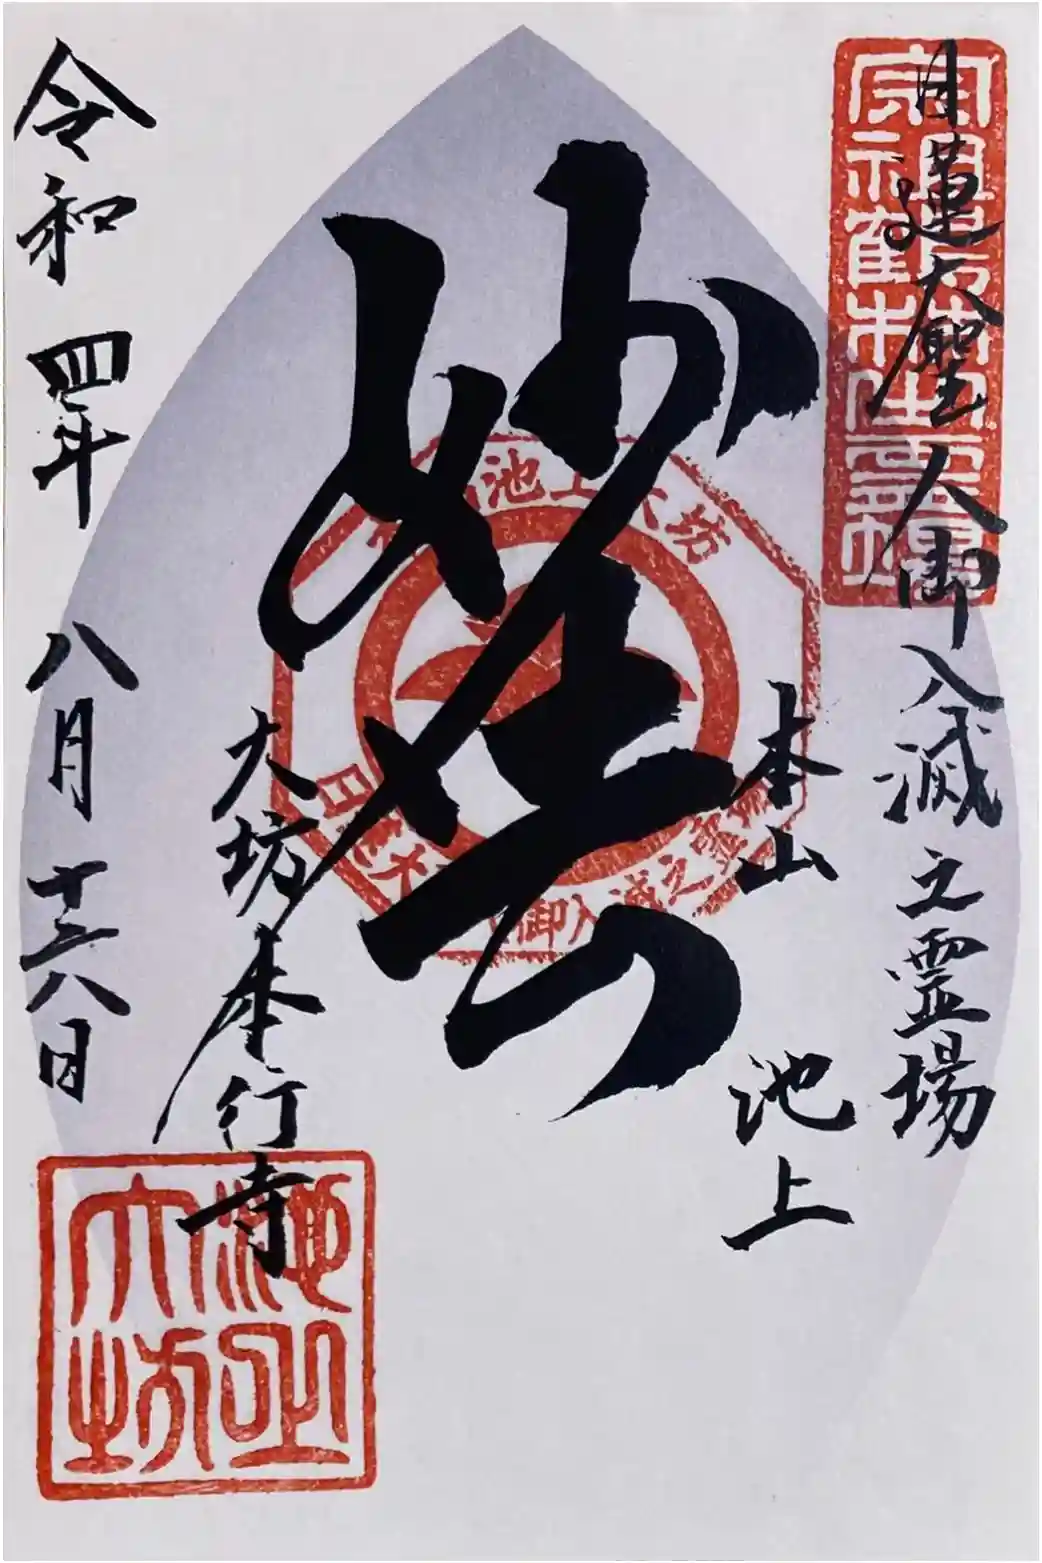 日蓮大聖人御入滅之霊場
本山 池上
妙法
大坊本行寺
令和四年八月十六日
池上大坊
日蓮大聖人御入滅之霊場
池上
大坊